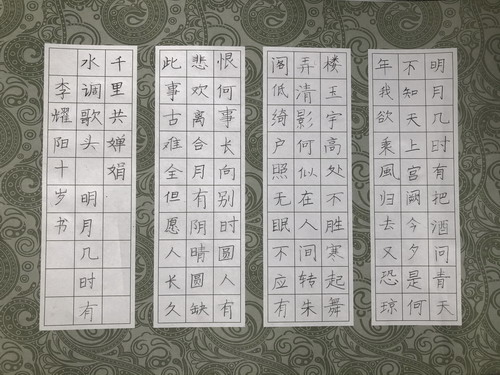 明月几时有把酒问青天
不知天上宫阙今夕是何
年我欲乘風归去又恐琼
楼玉宇高处不胜寒起舞
弄清影何似在人间转朱
阁低绮户照无眠不应有
恨何事长向别时圆人有
悲欢离合月有阴晴圆缺
此事古难全但愿人长久
千里共婵娟
水调歌头 明月几时有
李耀阳十岁书